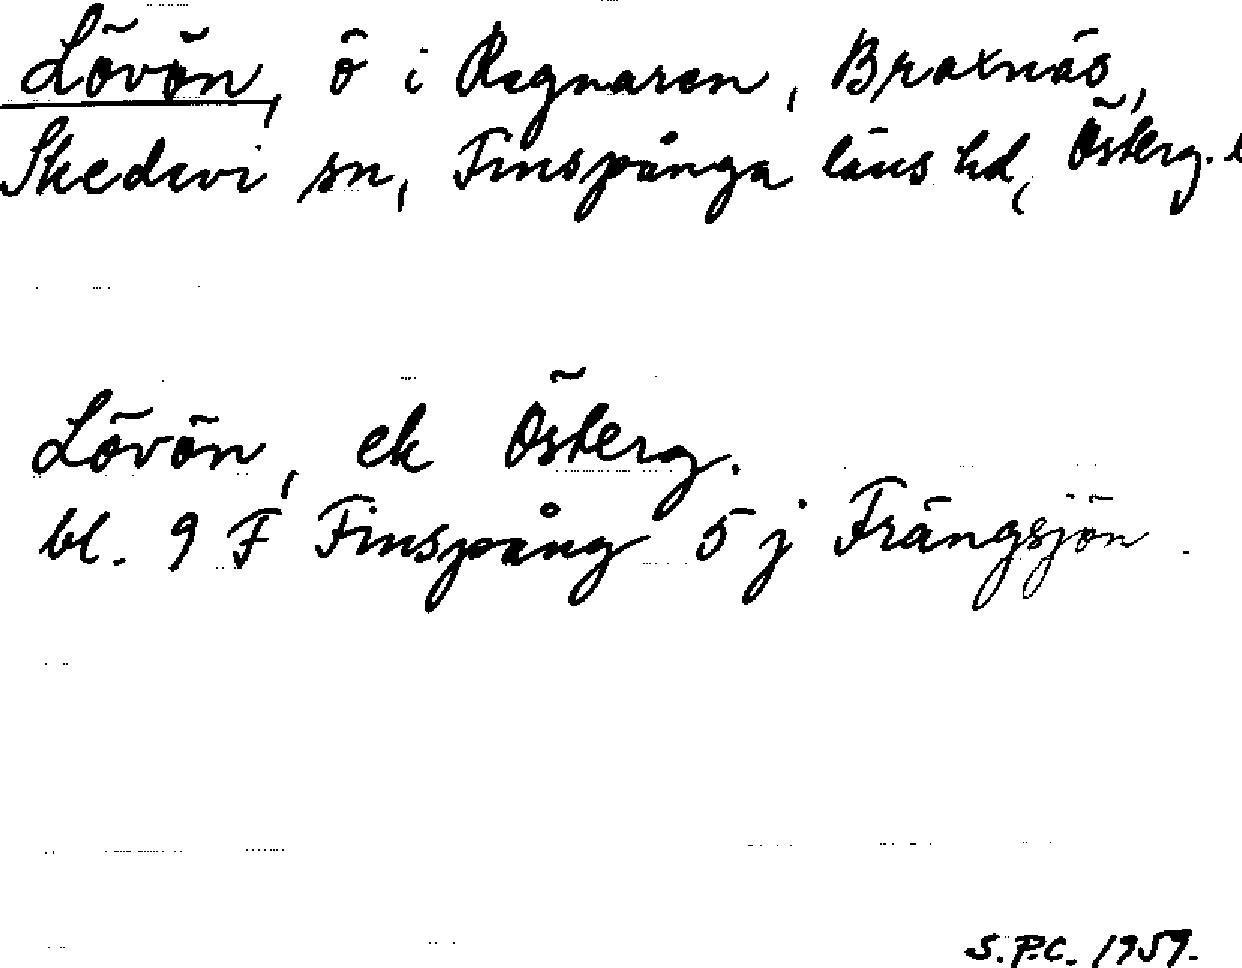 Lövön, ö i Regnaren, Braxnäs,
Skedevi sn, Finspånga läns hd, Österg. l
Lövön, ek Österg.
bl. 9 F Finspång 5 j Frängsjön.
S.P.C. 1959.